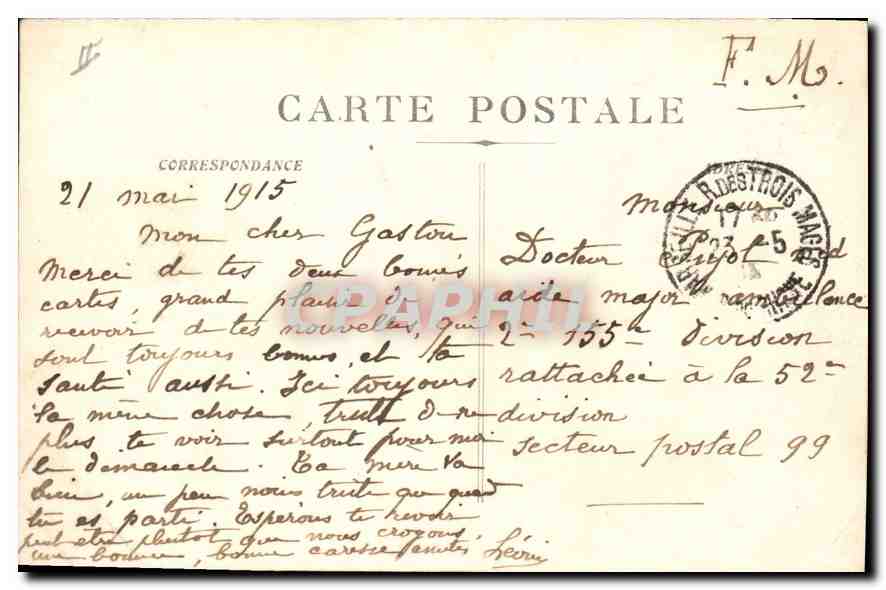 II
F. M.
CARTE POSTALE
CORRESPONDANCE
21 mai 1915
Mon cher Gaston
Merci de tes deux bonnes
cartes, grand plaisir de
recevoir de tes nouvelles, qui
sont toujours bonnes, et ta
santé aussi. Ici toujours
la même chose, triste de ne
plus te voir surtout pour moi
le dimanche. Ta mère va
bien, un peu moins triste que quand
tu es parti. Esperons te revoir
peut etre plutot que nous croyons,
une bonne, bonne caresse
Monsieur
Docteur Pujol
aide major ambulance
2e 155e division
rattachée à la 52e
division
secteur postal 99
MARSEILLE R. DES TROIS MAGES
17
23 - 5
CPAPHIL